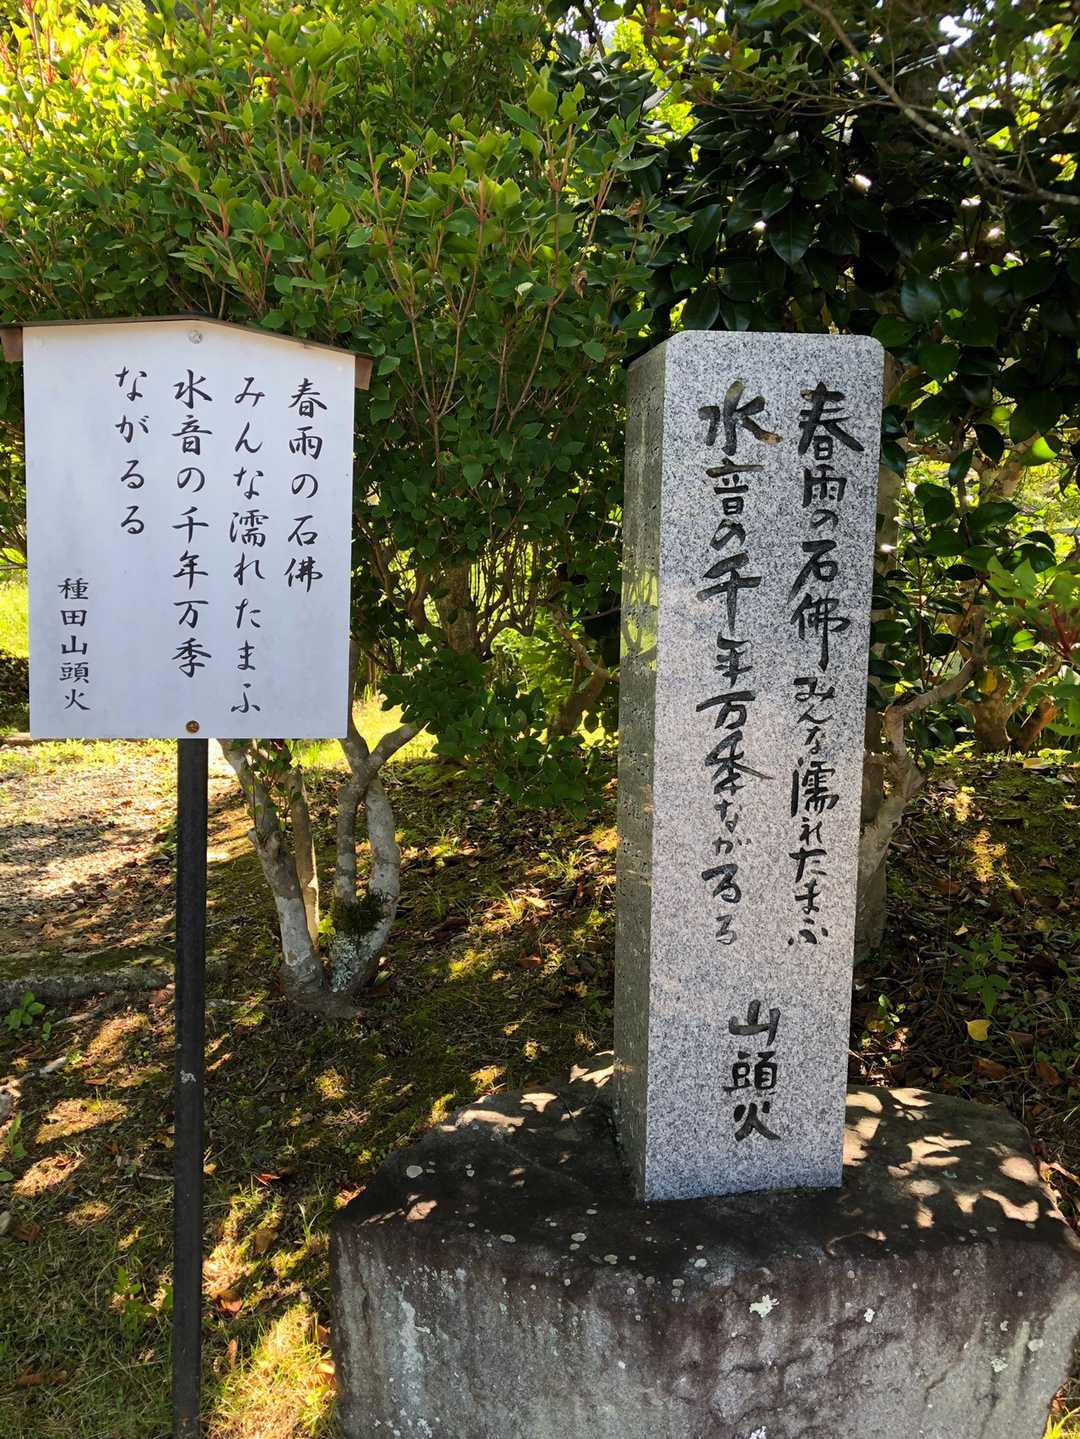 春雨の石佛
みんな濡れたまふ
水音の千年万季
ながるる
種田山頭火
春雨の石佛みんな濡れたまふ
水音の千年万季ながるる
山頭火